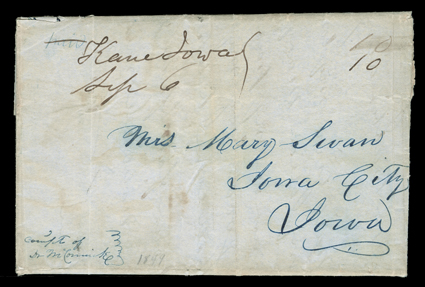 Kane Iowa
Sep 6
10
10
Mrs Mary Swan
Iowa City
Iowa
of
Dr McCormick